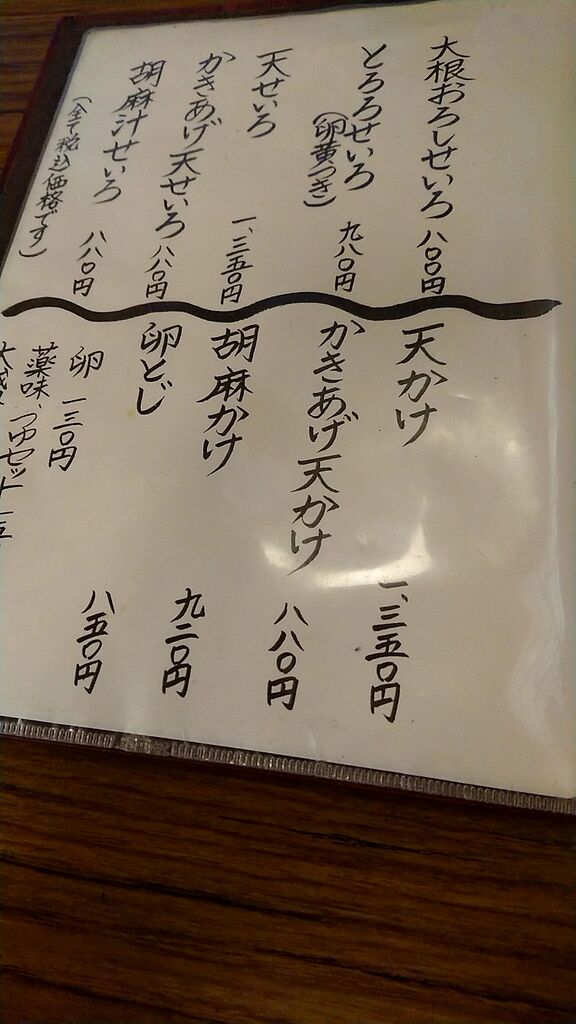 大根おろしせいろ 八〇〇円
とろろせいろ 九八〇円
(卵黄つき)
天せいろ 一、三五〇円
かきあげ天せいろ 八八〇円
胡麻汁せいろ 八八〇円
(全て税込価格です)
天かけ 一、三五〇円
かきあげ天かけ 八八〇円
胡麻かけ 九二〇円
卵とじ 八五〇円
卵 一三〇円
薬味、つゆセット 一五
大盛